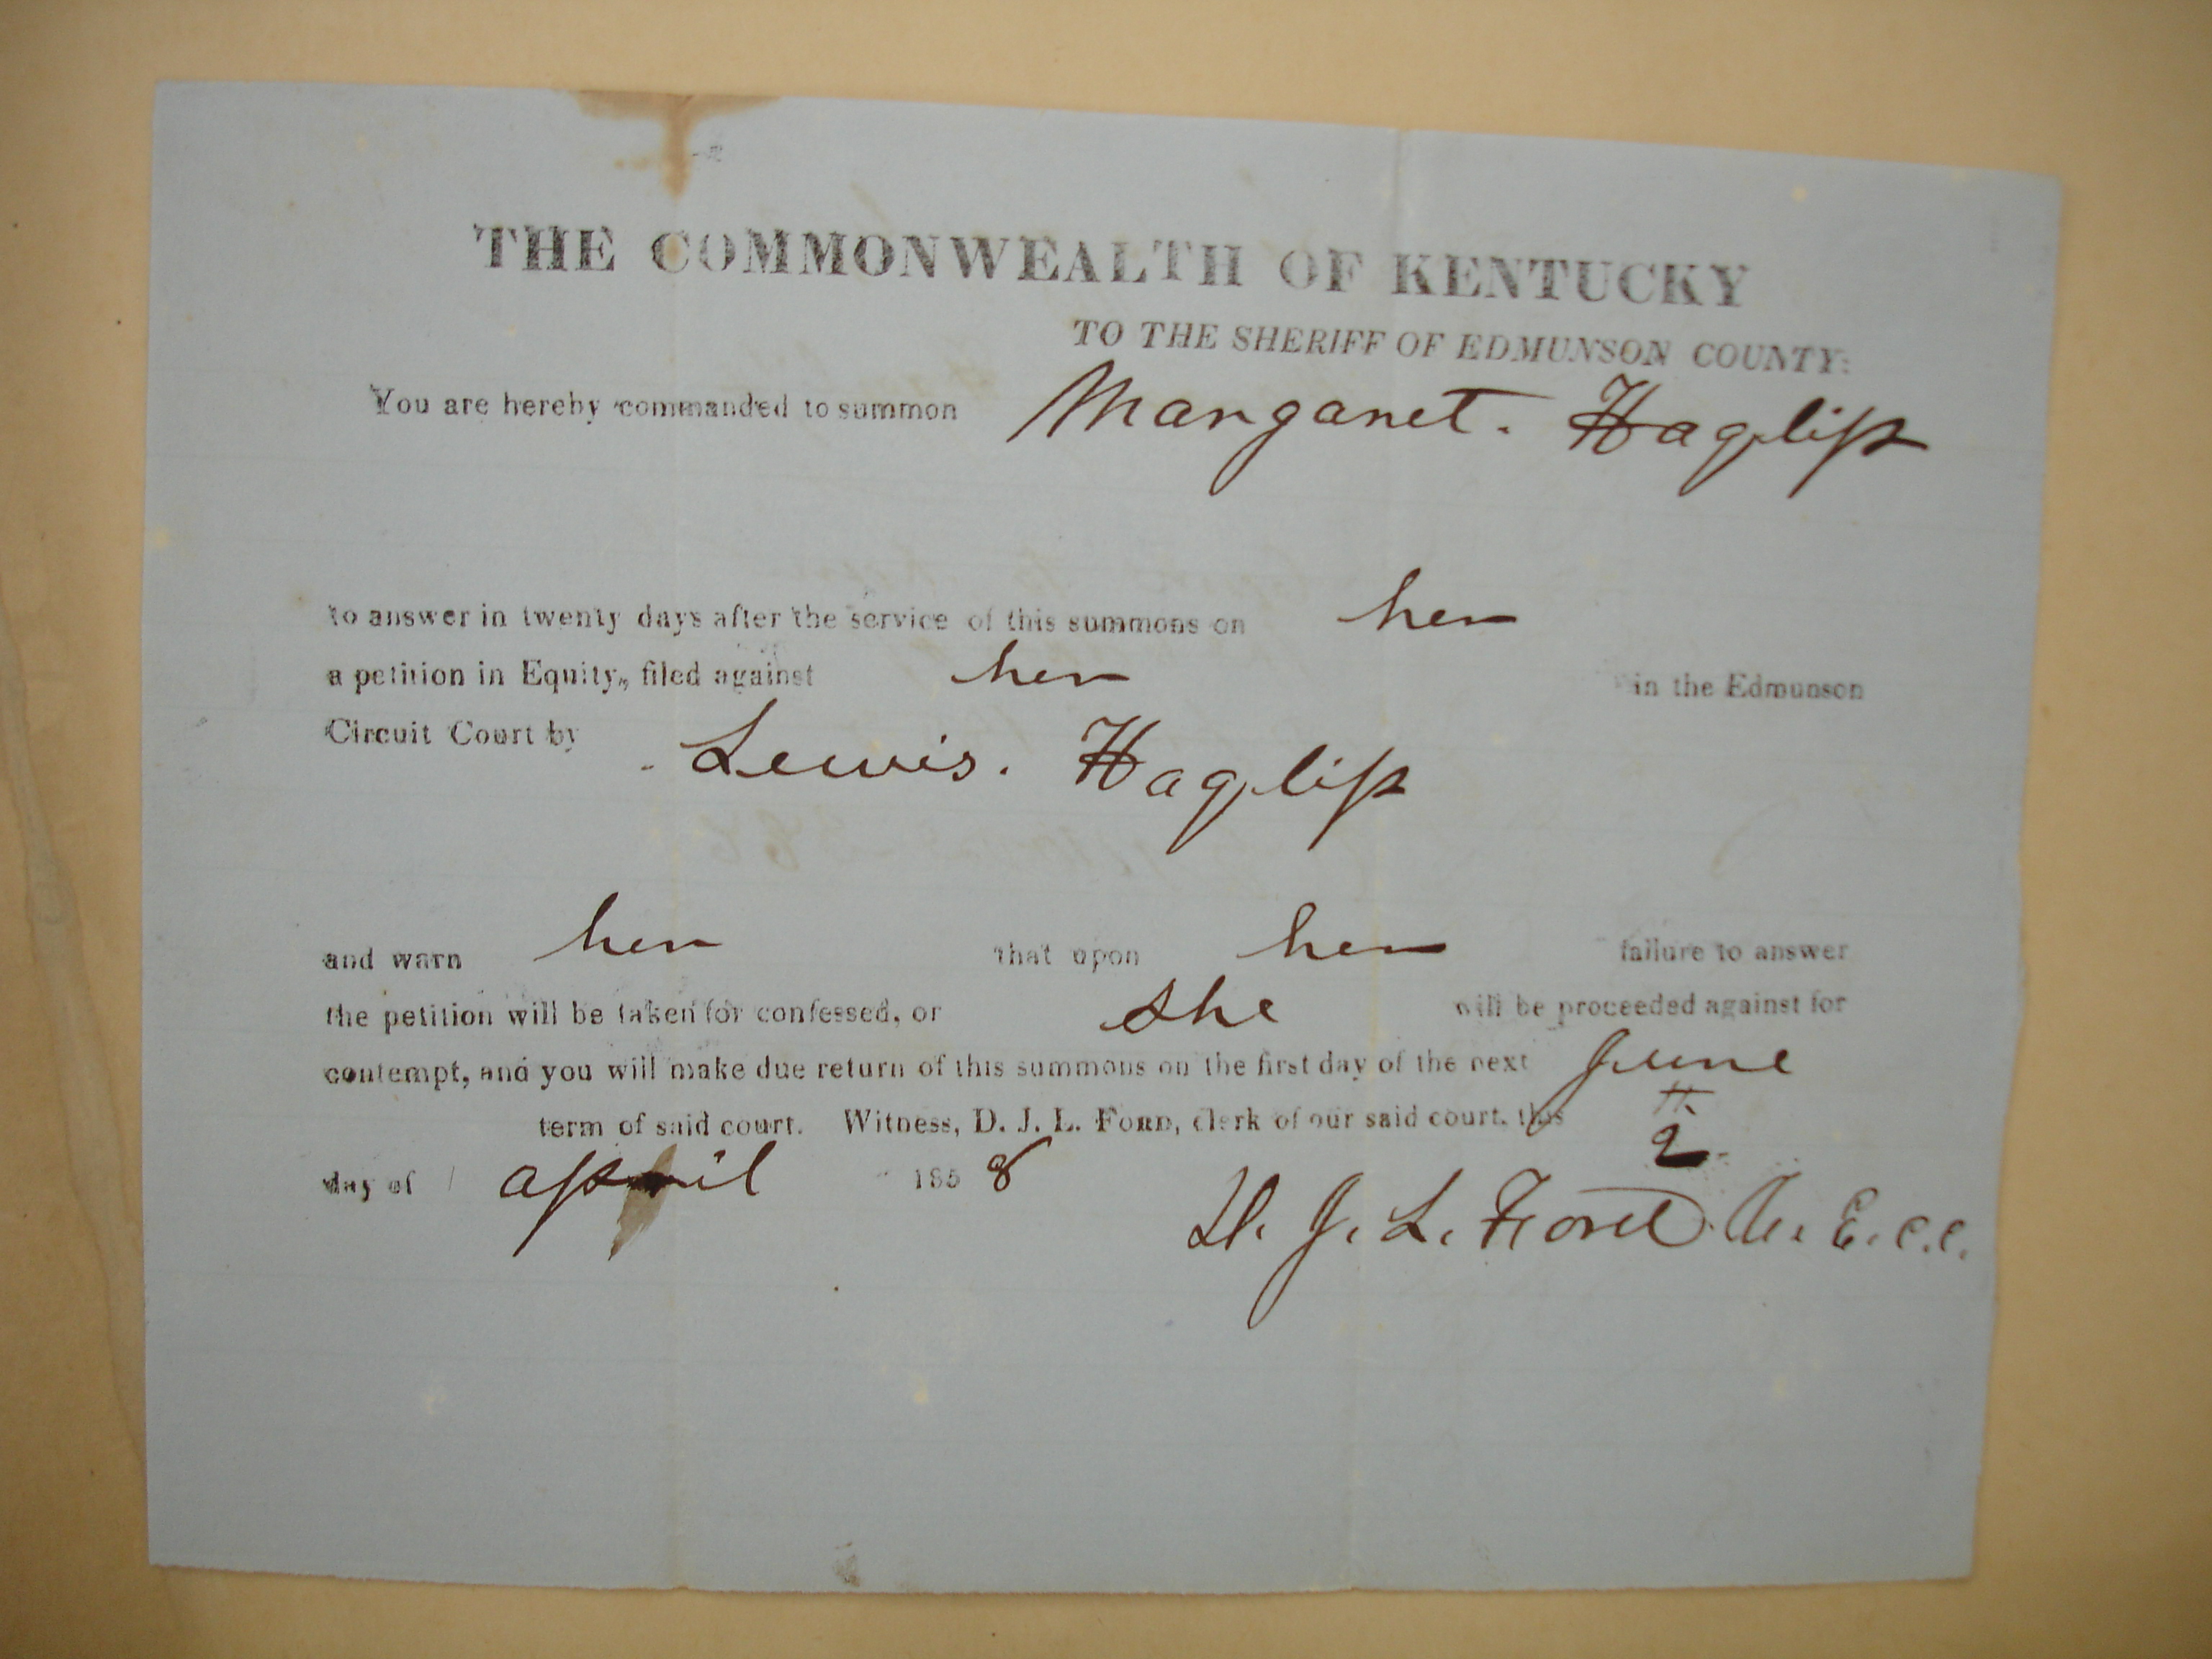 THE COMMONWEALTH OF KENTUCKY
TO THE SHERIFF OF EDMUNSON COUNTY:
You are hereby commanded to summon Margaret. Hazlip
to answer in twenty days after the service of this summons on her
a petition in Equity, filed against her in the Edmunson
Circuit Court by Lewis. Hazlip
and warn her that upon her failure to answer
the petition will be taken for confessed, or she will be proceeded against for
contempt, and you will make due return of this summons on the first day of the next June
term of said court. Witness, D. J. L. FORD, clerk of our said court, this 2
day of april 1858
D. J. L. Ford E.C.C.